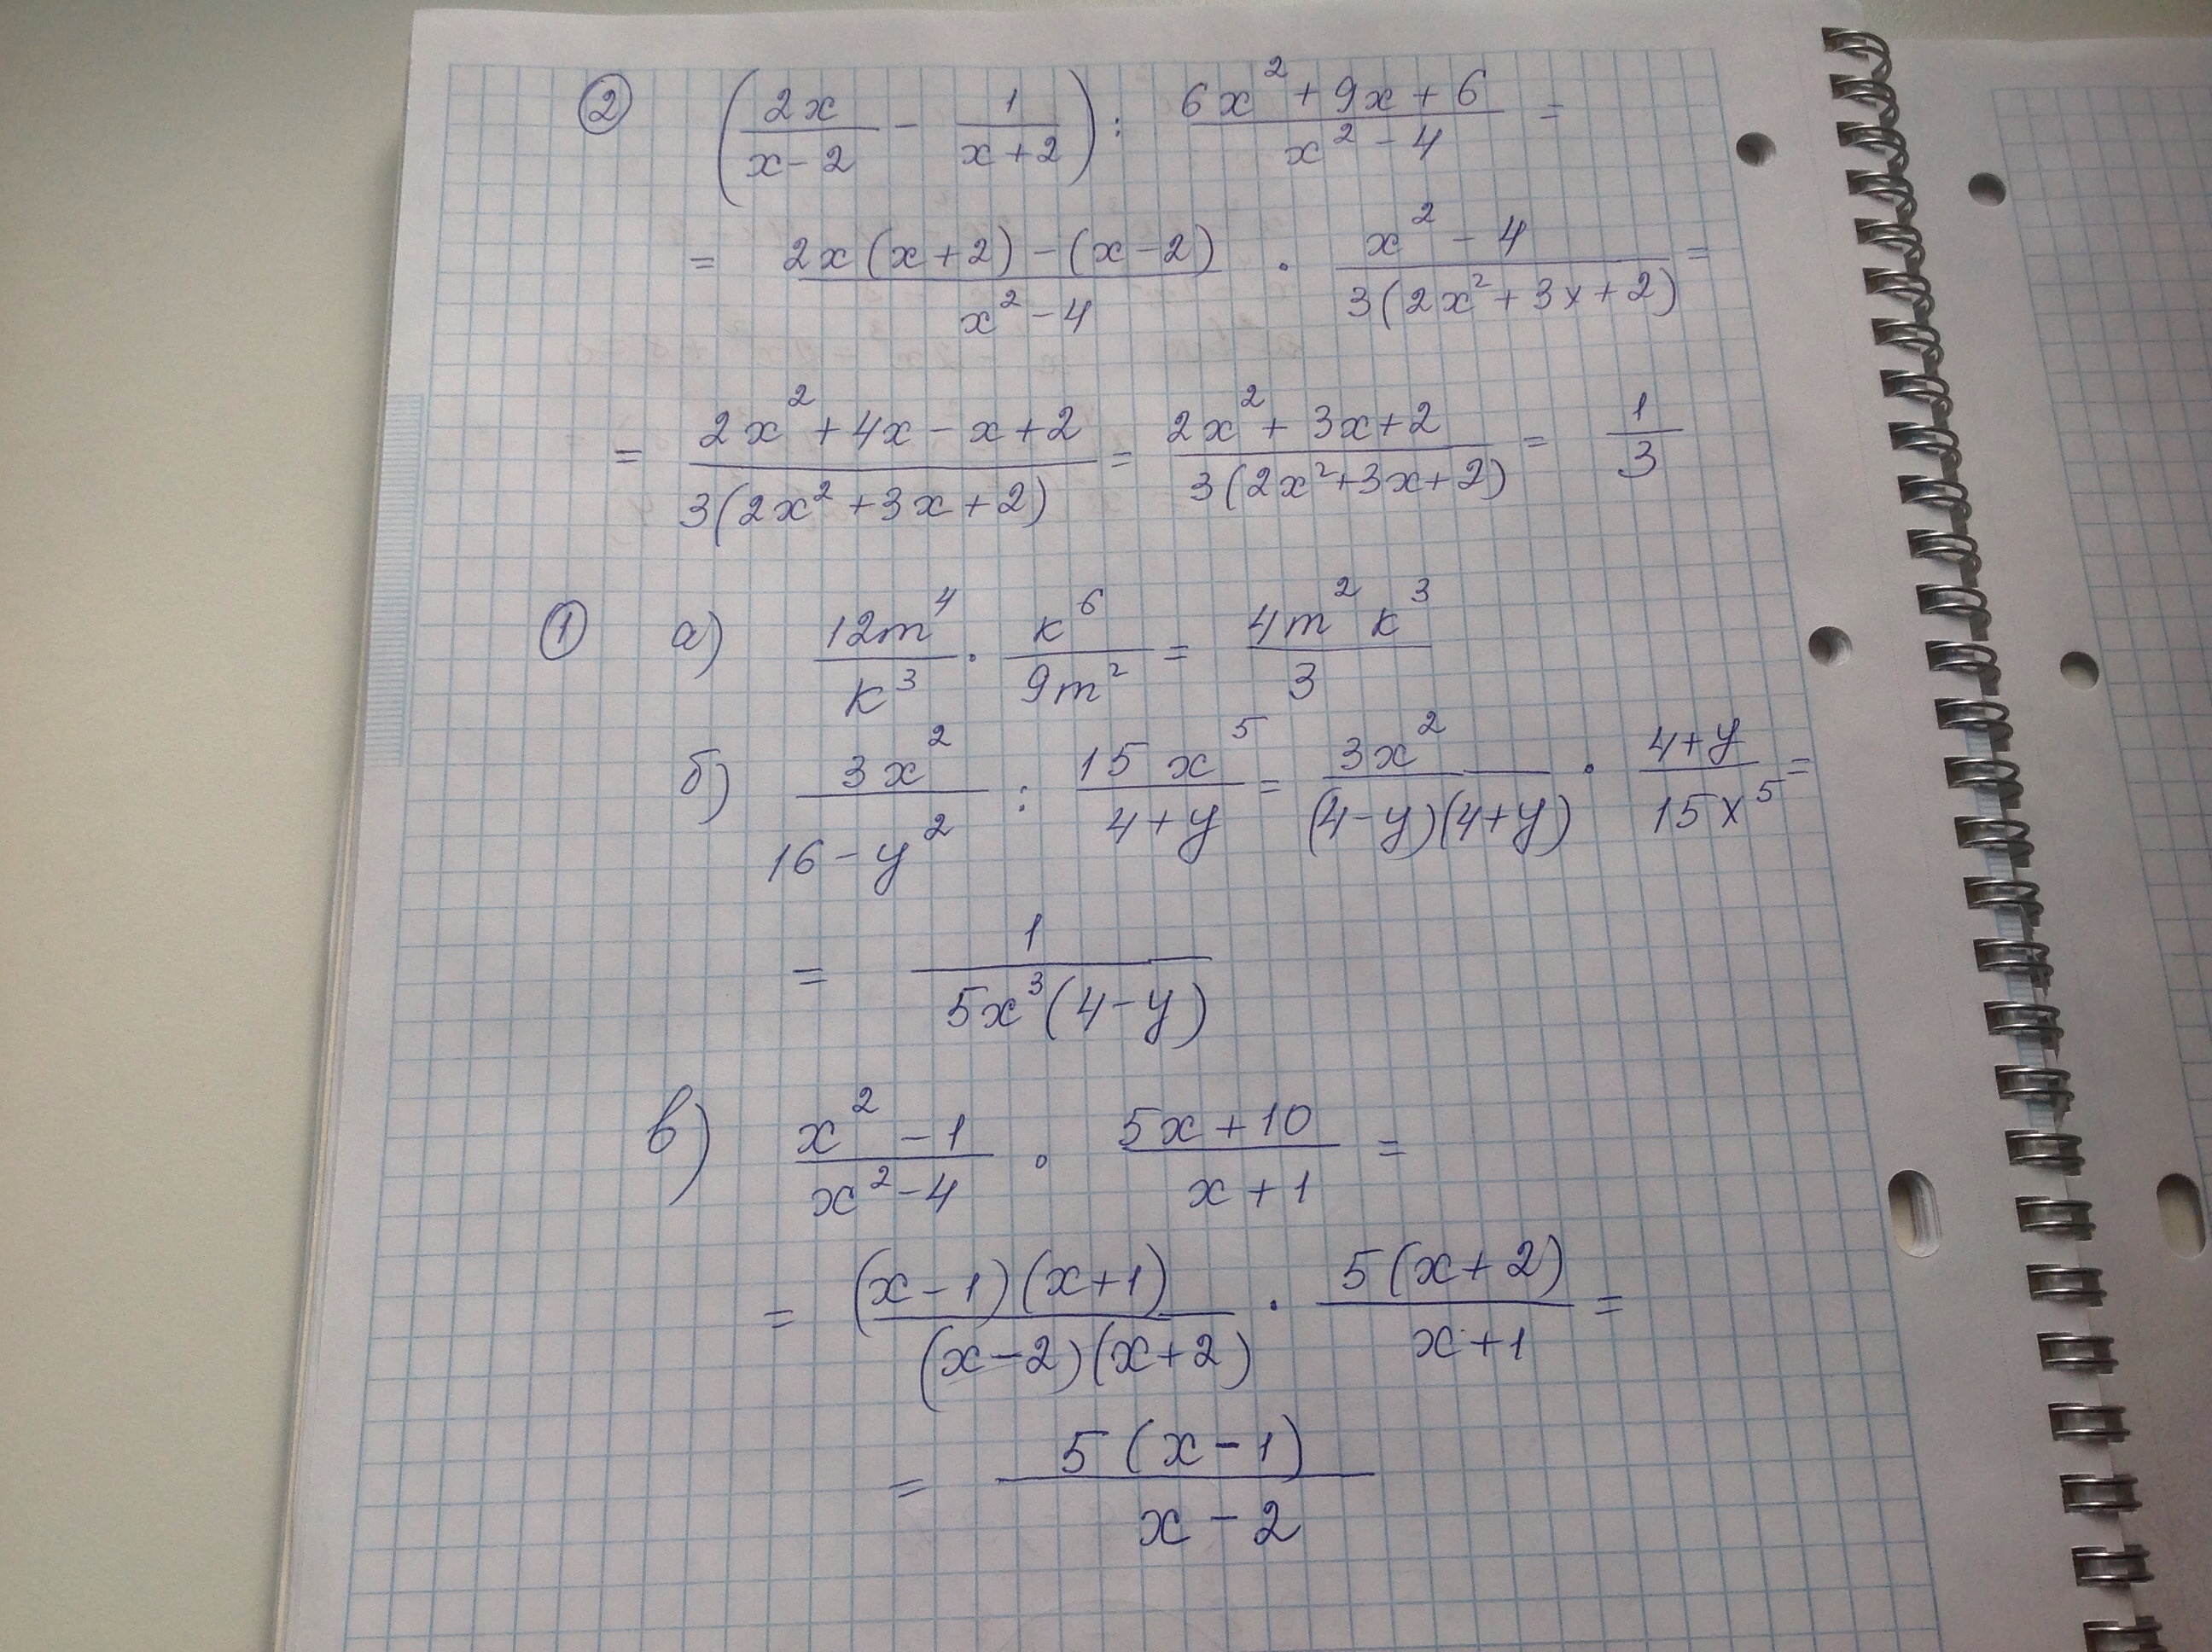 ② (2x/(x-2) - 1/(x+2)) : (6x²+9x+6)/(x²-4) =
= (2x(x+2)-(x-2))/(x²-4) · (x²-4)/(3(2x²+3x+2)) =
= (2x²+4x-x+2)/(3(2x²+3x+2)) = (2x²+3x+2)/(3(2x²+3x+2)) = 1/3
① а) 12m⁴/к³ · к⁶/9m² = 4m²к³/3
б) 3x²/(16-y²) : 15x⁵/(4+y) = 3x²/((4-y)(4+y)) · (4+y)/15x⁵ =
= 1/(5x³(4-y))
в) (x²-1)/(x²-4) · (5x+10)/(x+1) =
= ((x-1)(x+1))/((x-2)(x+2)) · (5(x+2))/(x+1) =
= (5(x-1))/(x-2)